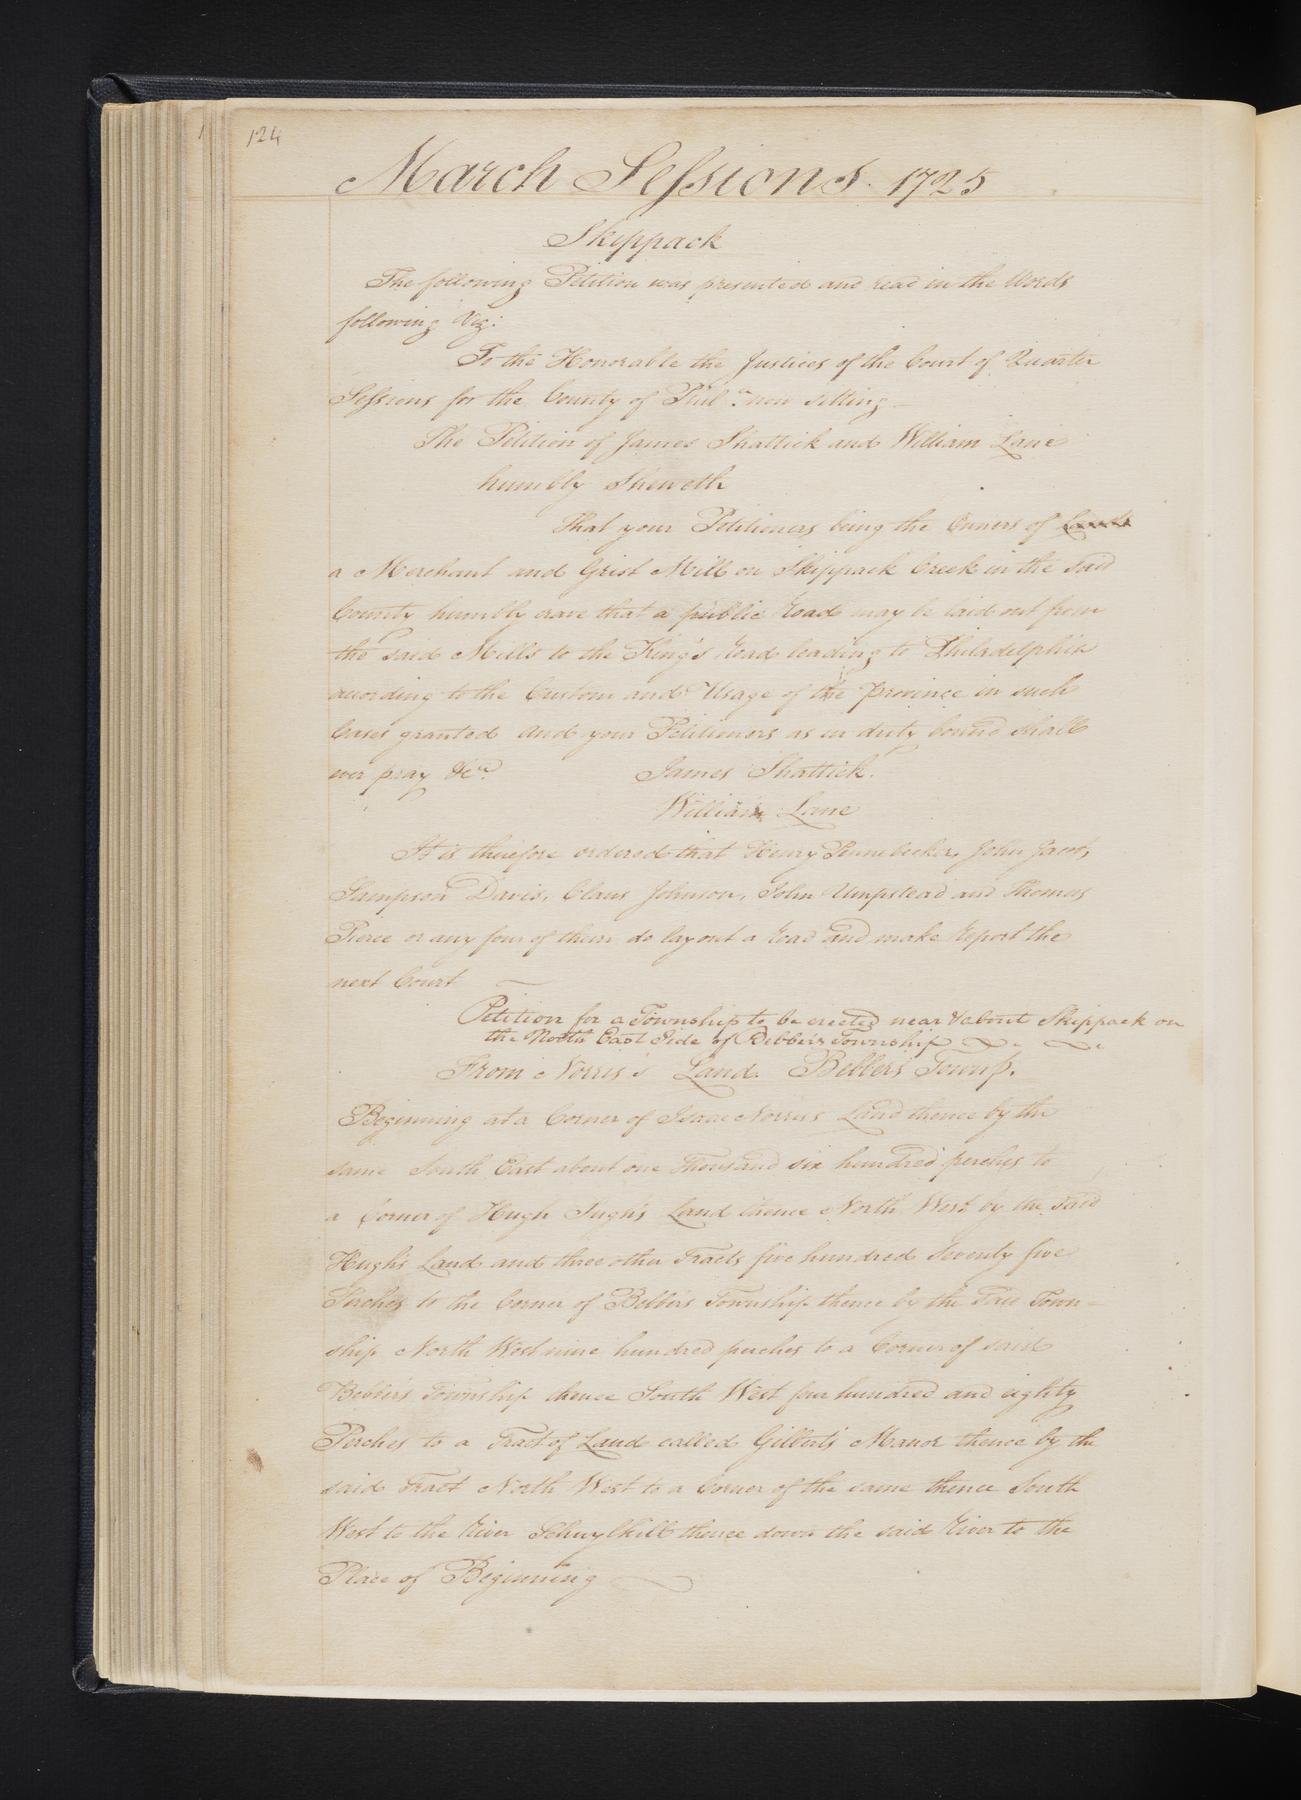 124
March Sessions. 1725
Skippack
The following Petition was presented and read in the Words
following Viz:
To the Honorable the Justices of the Court of Quarter
Sessions for the County of Phil.a now sitting
The Petition of James Shattick and William Lane
humbly Sheweth
That your Petitioners being the Owners of Lands
a Merchant and Grist Mill on Skippack Creek in the said
County humbly crave that a public road may be laid out from
the said Mills to the King's road leading to Philadelphia
according to the Custom and Usage of the Province in such
Cases granted and your Petitioners as in duty bound shall
ever pray &c.a James Shattick.
William Lane
It is therefore ordered that Henry Pennebecker, John Jacob,
Sampson Davis, Claus Johnson, John Umpstead and Thomas
Pierce or any four of them do lay out a road and make report the
next Court
Petition for a Township to be erected near & about Skippack on
the North East Side of Bebber's Township
From Norris's Land. Bebber's Townsp.
Beginning at a Corner of Isaac Norris's Land thence by the
same South East about one Thousand six hundred perches to
a Corner of Hugh Hugh's Land thence North West by the said
Hugh's Land and three other Tracts five hundred Seventy five
Perches to the Corner of Bebber's Township thence by the said Town-
ship North West nine hundred perches to a Corner of said
Bebber's Township thence South West four hundred and eighty
Perches to a Tract of Land called Gilbert's Manor thence by the
said Tract North West to a Corner of the same thence South
West to the River Schuylkill thence down the said River to the
Place of Beginning